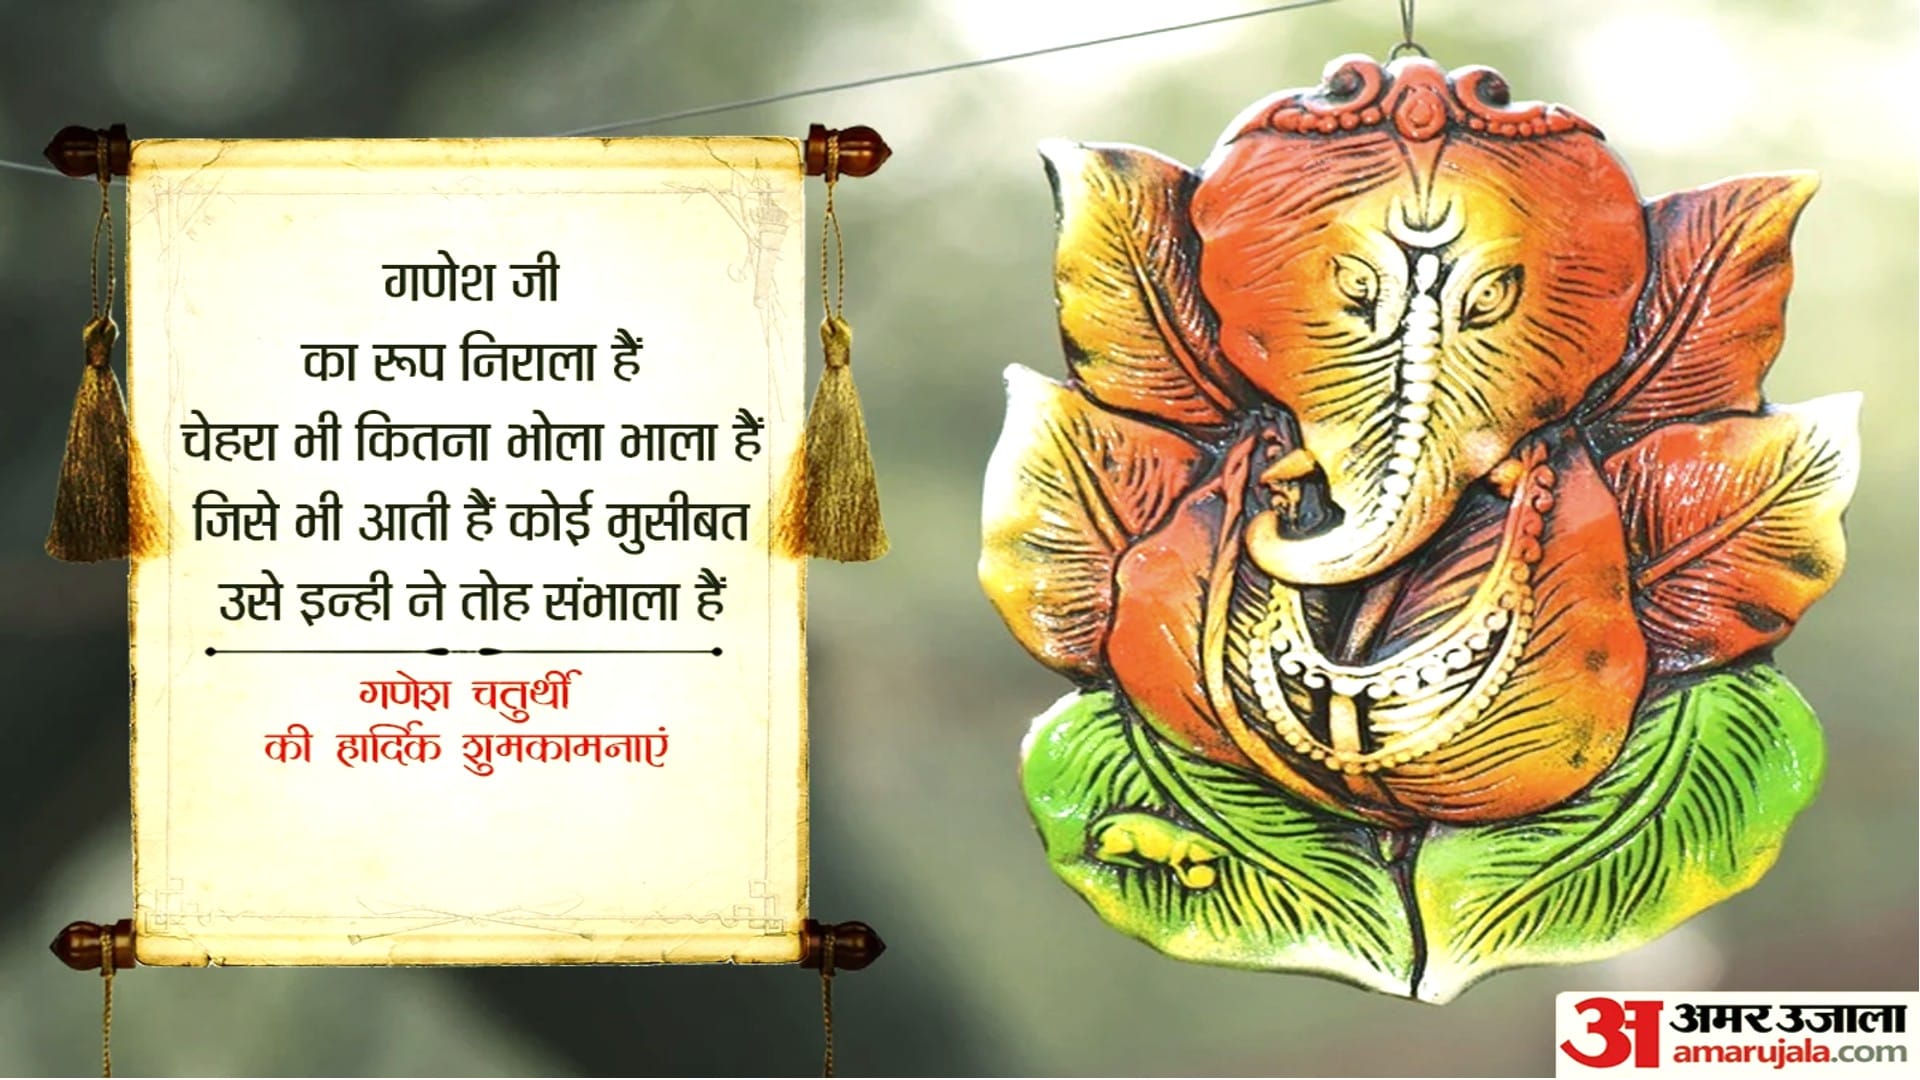 गणेश जी
का रूप निराला हैं
चेहरा भी कितना भोला भाला हैं
जिसे भी आती हैं कोई मुसीबत
उसे इन्ही ने तोह संभाला हैं
गणेश चतुर्थी
की हार्दिक शुभकामनाएं
अ अमर उजाला
amarujala.com